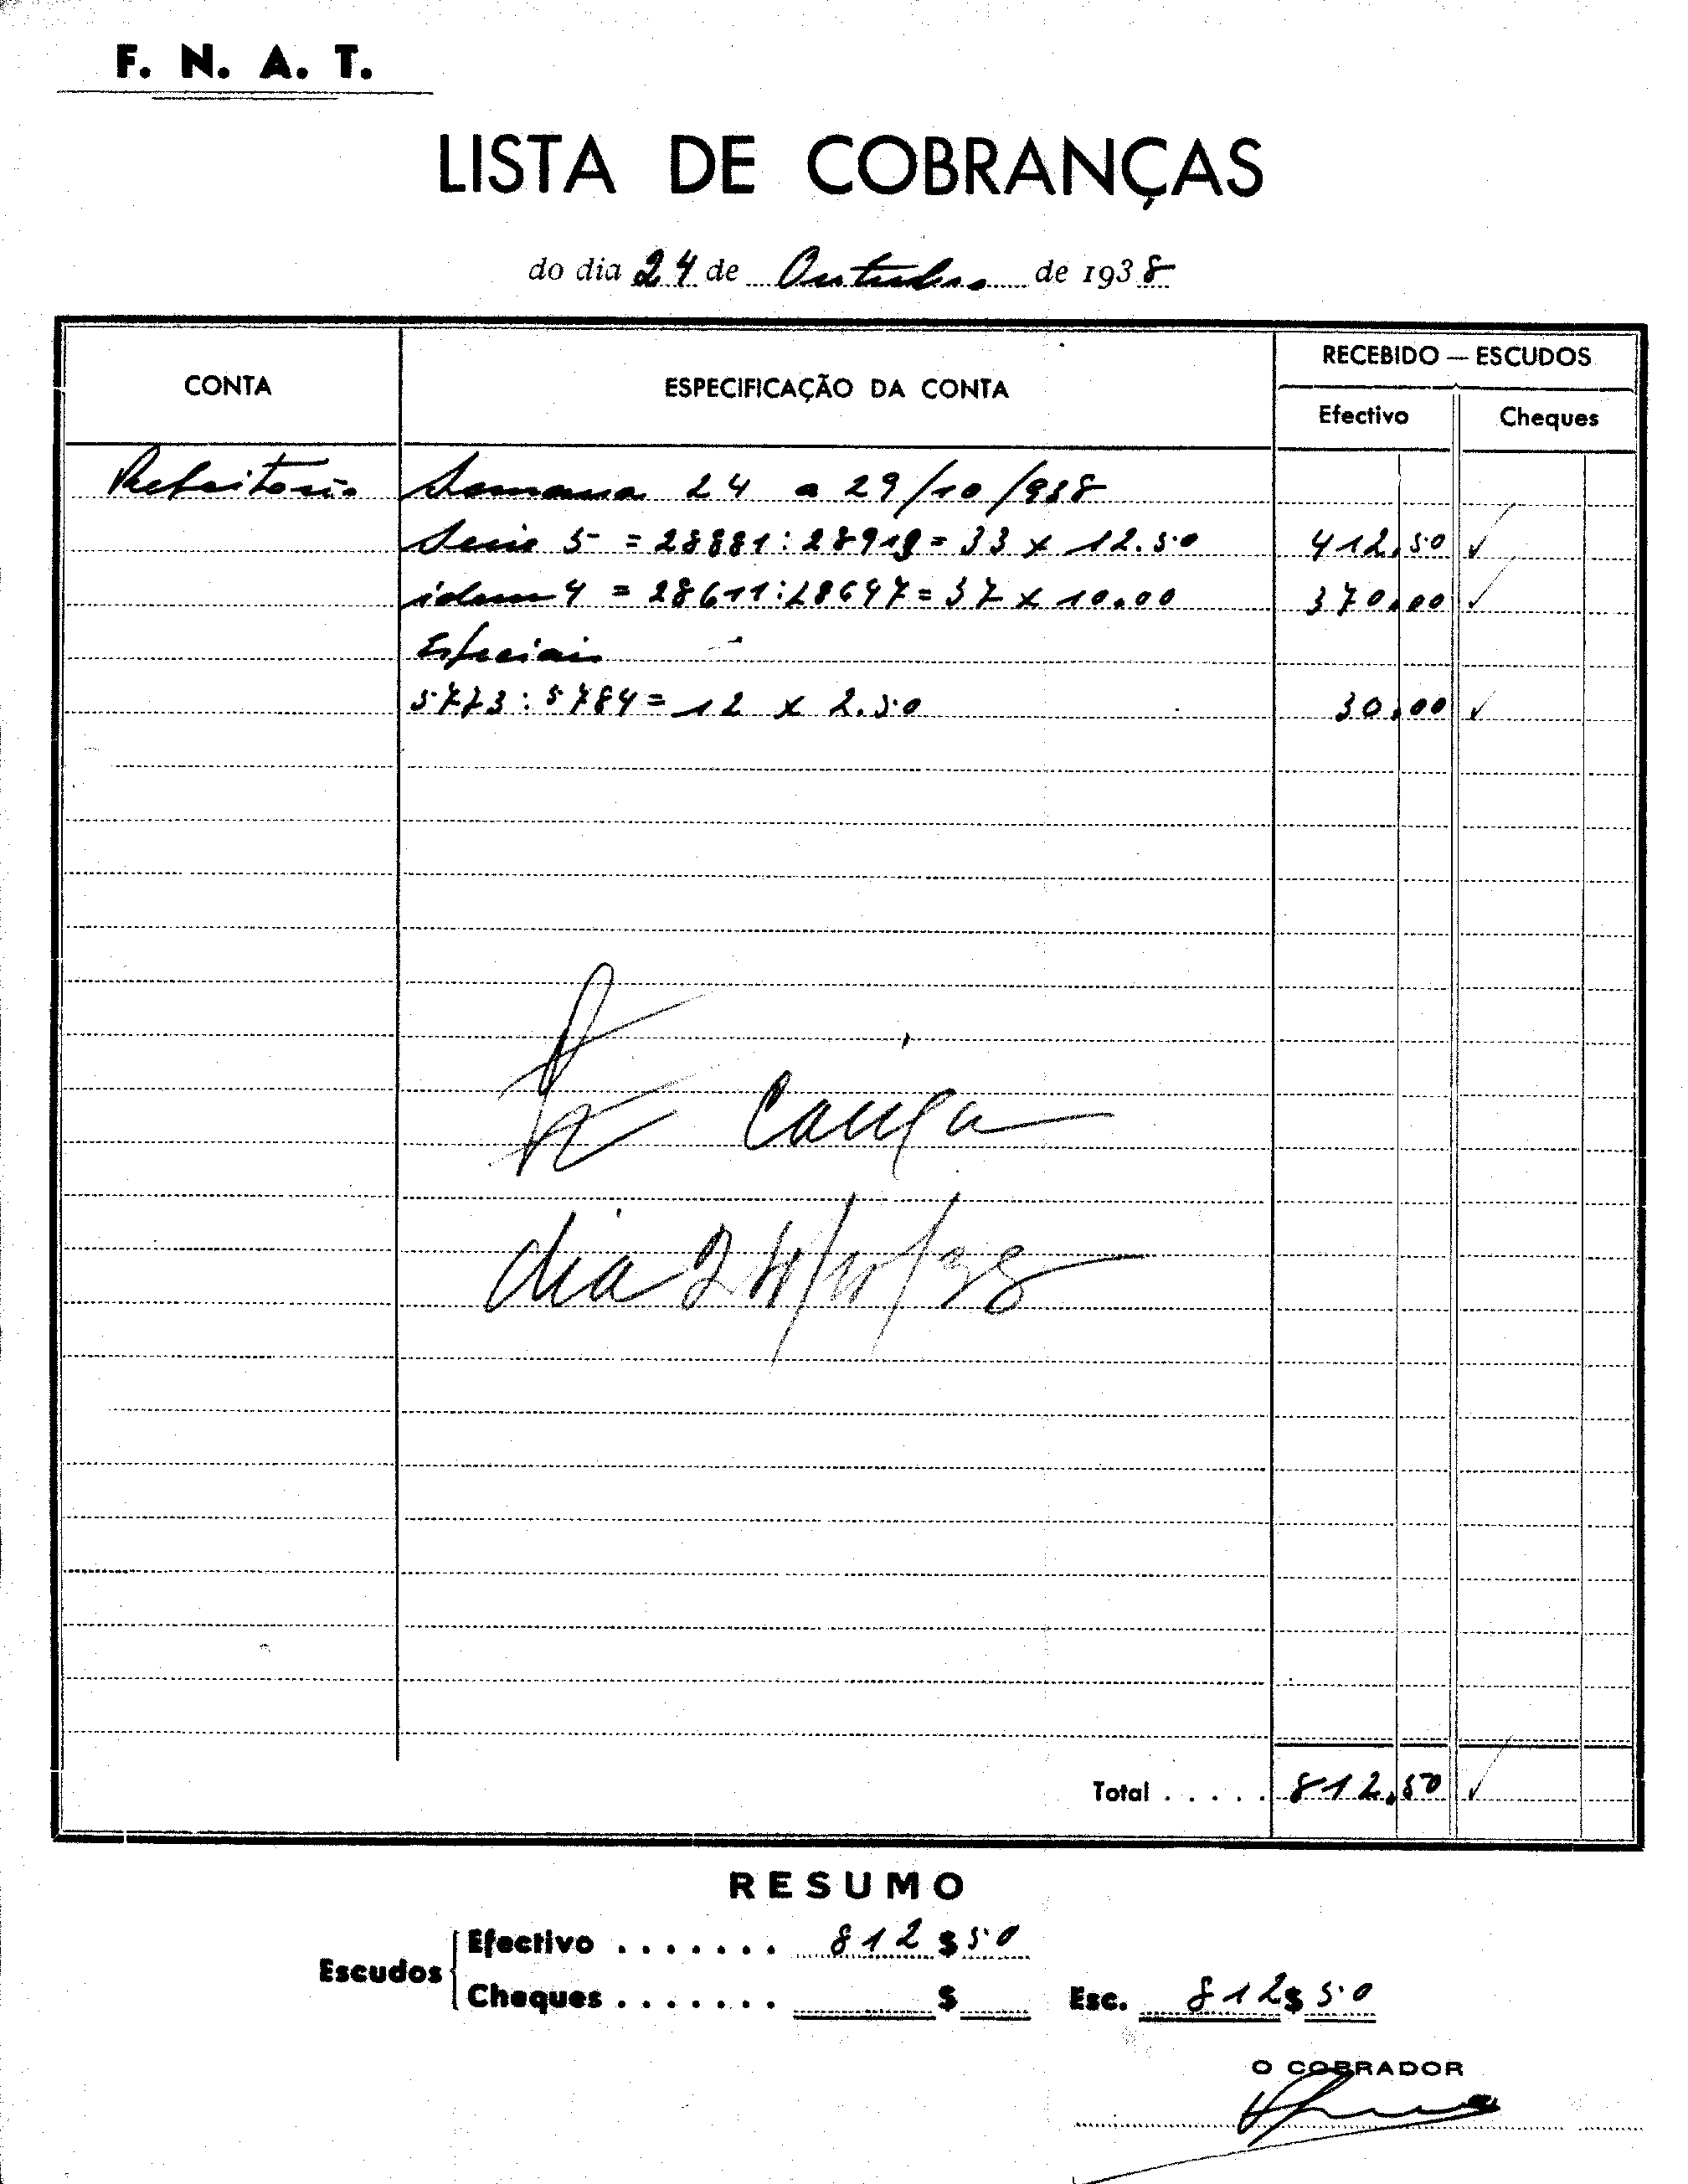 F. N. A. T.
LISTA DE COBRANÇAS
do dia 24 de Outubro de 1938
CONTA
ESPECIFICAÇÃO DA CONTA
RECEBIDO — ESCUDOS
Efectivo
Cheques
Refeitorio Semana 24 a 29/10/938
Serie 5 = 28881:28919 = 33 x 12.50 412,50 ✓
idem 4 = 28611:28647 = 37 x 10.00 370,00 ✓
Especiais
5773:5784 = 12 x 2.50 30,00 ✓
Caixa
dia 24/10/38
Total . . . . . 812,50 ✓
RESUMO
Escudos
Efectivo . . . . . . . 812$50
Cheques . . . . . . . $
Esc. 812$50
O COBRADOR